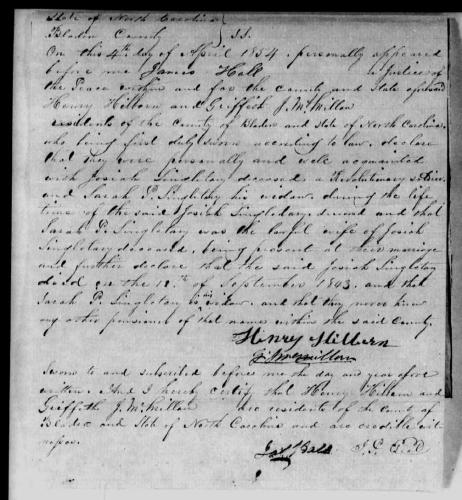 State of North Carolina
Bladen County } SS.
On this 4th day of April 1854, personally appeared
before me James Hall a Justice of
the Peace within and for the county and State aforesaid
Henry Hilburn and Griffeth J. McMillan
residents of the County of Bladen and State of North Carolina,
who being first duly sworn according to law, declare
that they were personally and well acquainted
with Josiah Singletary deceased a Revolutionary Soldier
and Sarah P. Singletary his widow, during the life
time of the said Josiah Singletary, deceased and that
Sarah P. Singletary was the lawful wife of Josiah
Singletary deceased, being present at their marriage
and further declare that the said Josiah Singletary
died on the 12th of September 1843, and that
Sarah P. Singletary is his widow, and that they never knew
any other pensioner of that name within the said County.
Henry Hilburn
G J McMillan
Sworn to and subscribed before me the day and year afore
written. And I hereby certify that Henry Hilburn and
Griffeth J. McMillan are residents of the County of
Bladen and State of North Carolina and are credible wit
nesses.
Jas Hall J. P.